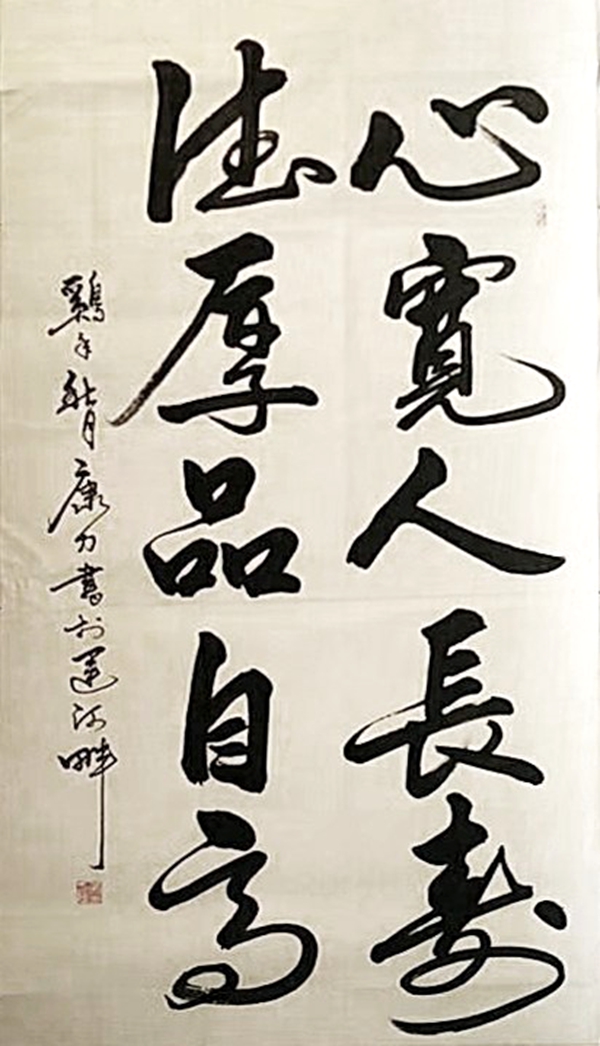 心寬人長壽
德厚品自高
鷄年秋月康力書於運河畔